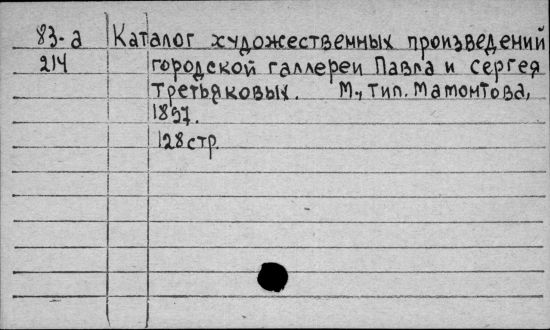 83-а Каталог художественных произведений
214 городской галлереи Павла и Сергея
Третьяковых. М., тип. Мамонтова,
1897.
128 стр.